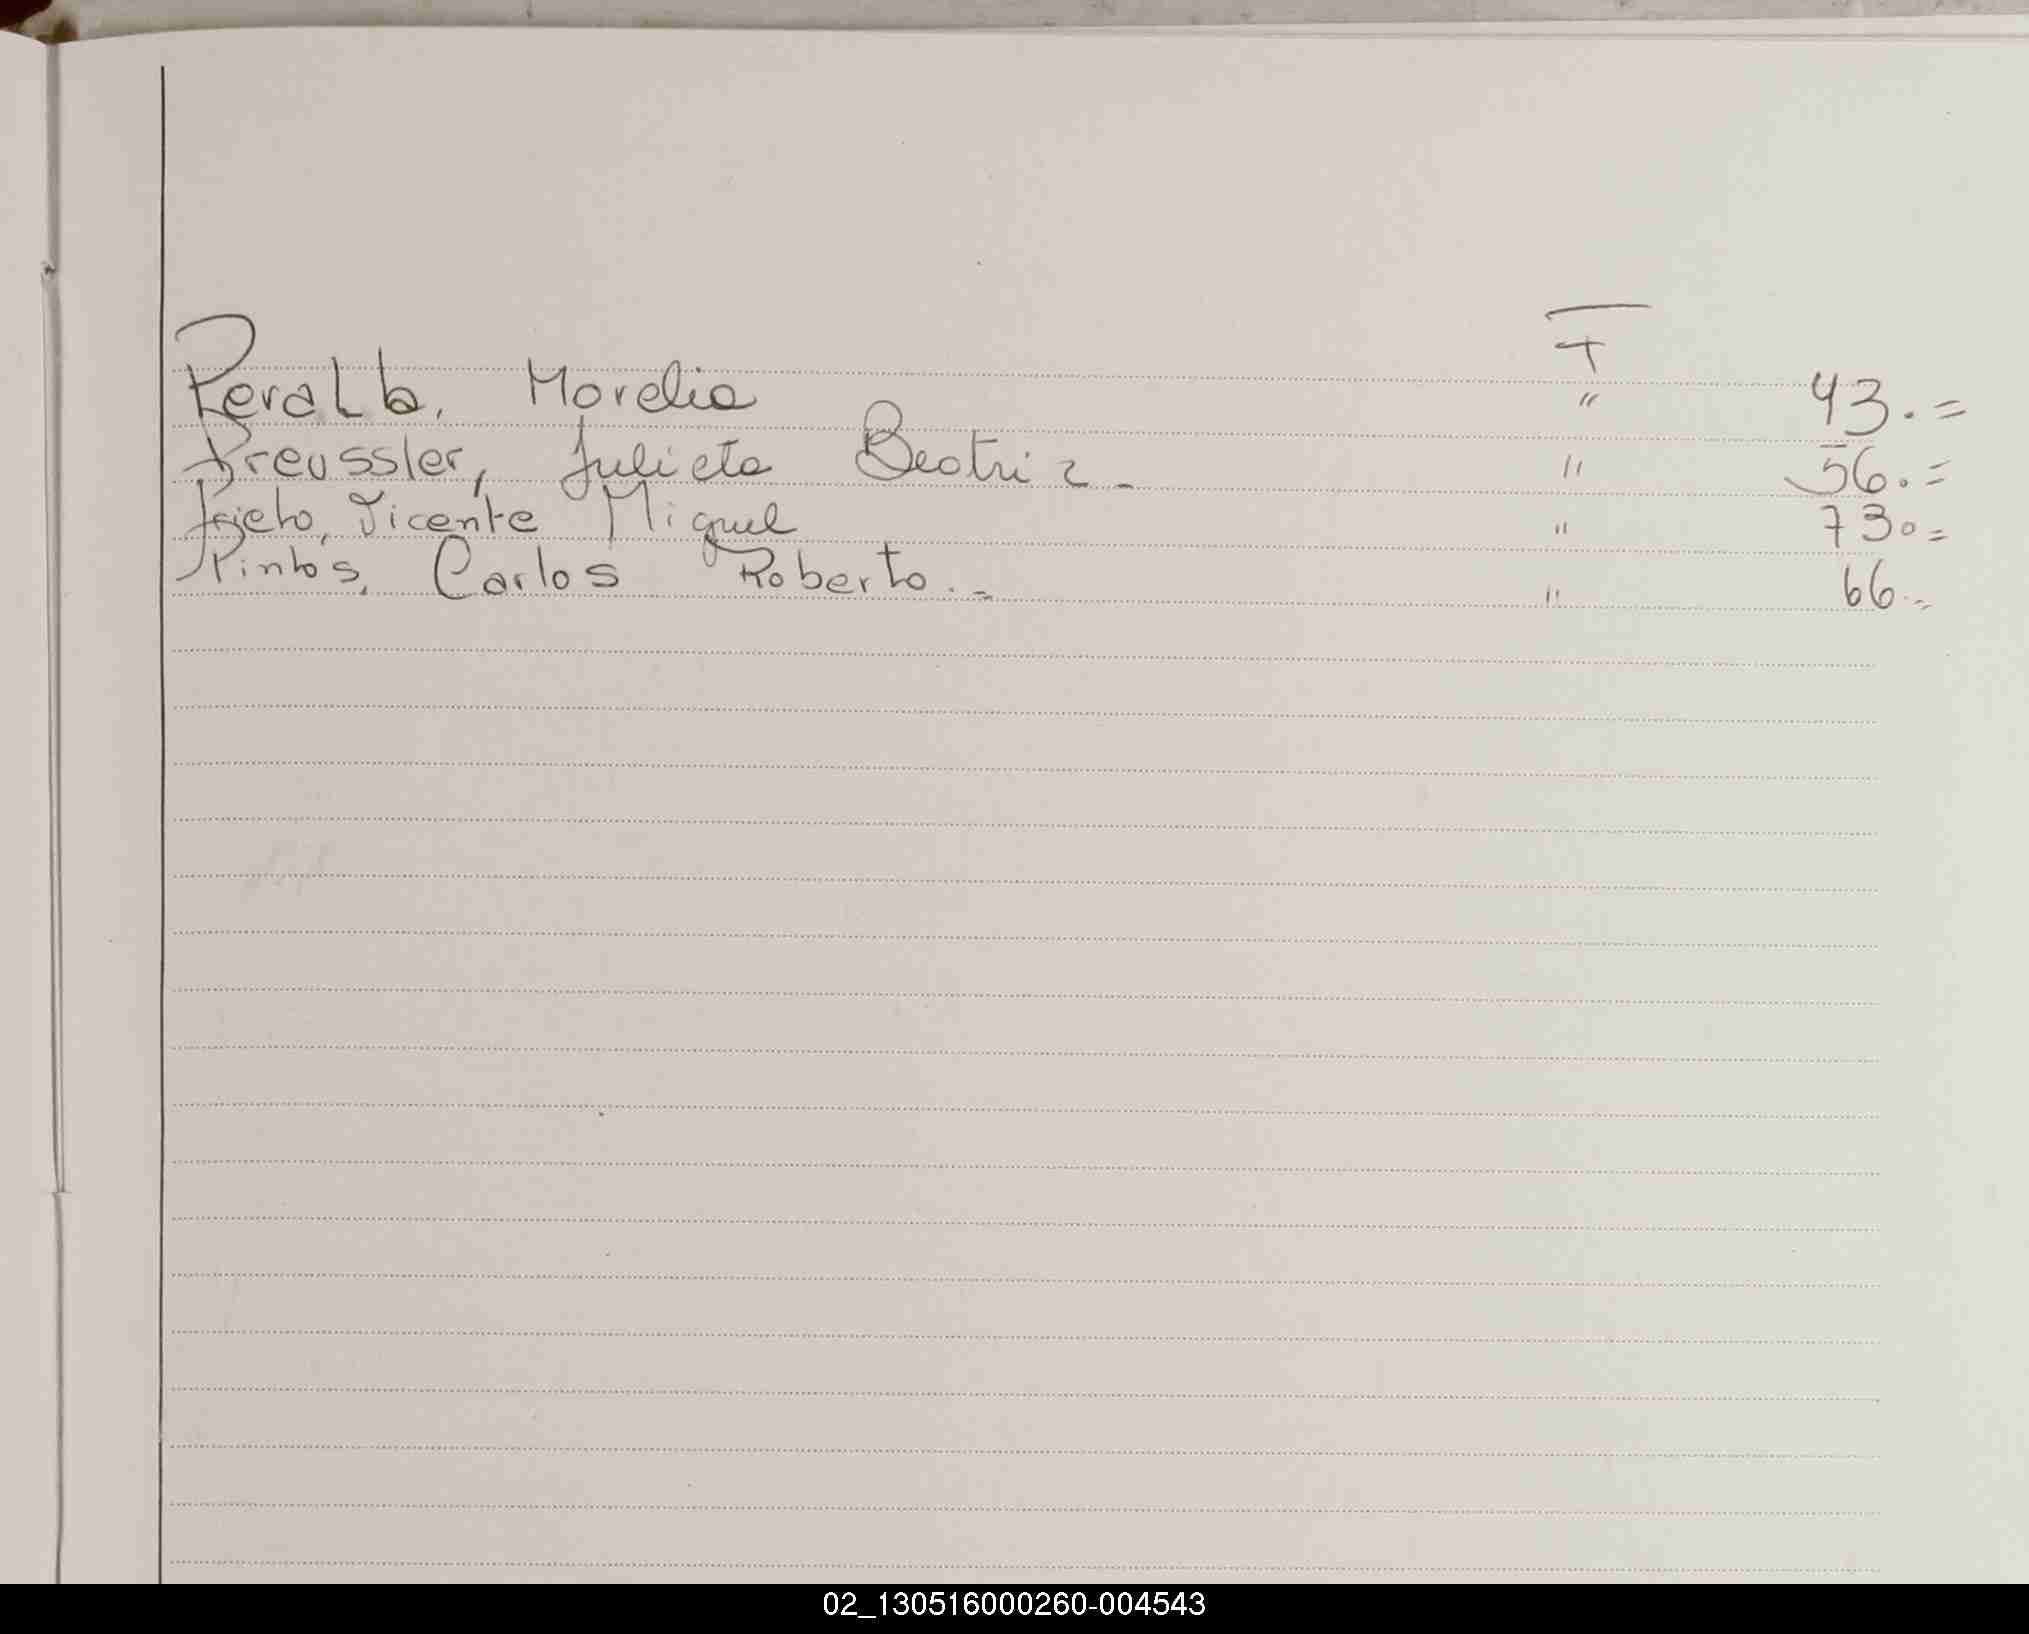 T
Peralta, Morelia " 43.=
Preussler, Julieta Beatriz - " 56.=
Prieto, Vicente Miguel " 73.=
Pintos, Carlos Roberto.= " 66.=
02_130516000260-004543